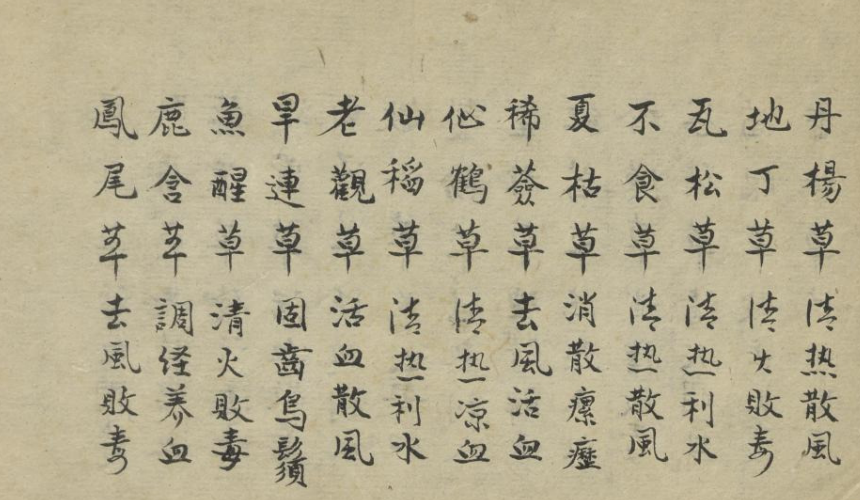 丹楊草清热散風
地丁草清火敗毒
瓦松草清热利水
不食草清热散風
夏枯草消散瘰癧
稀薟草去風活血
仙鶴草清热凉血
仙稻草清热利水
老觀草活血散風
旱連草固齒烏鬚
魚醒草清火敗毒
鹿含草調经养血
鳳尾草去風敗毒